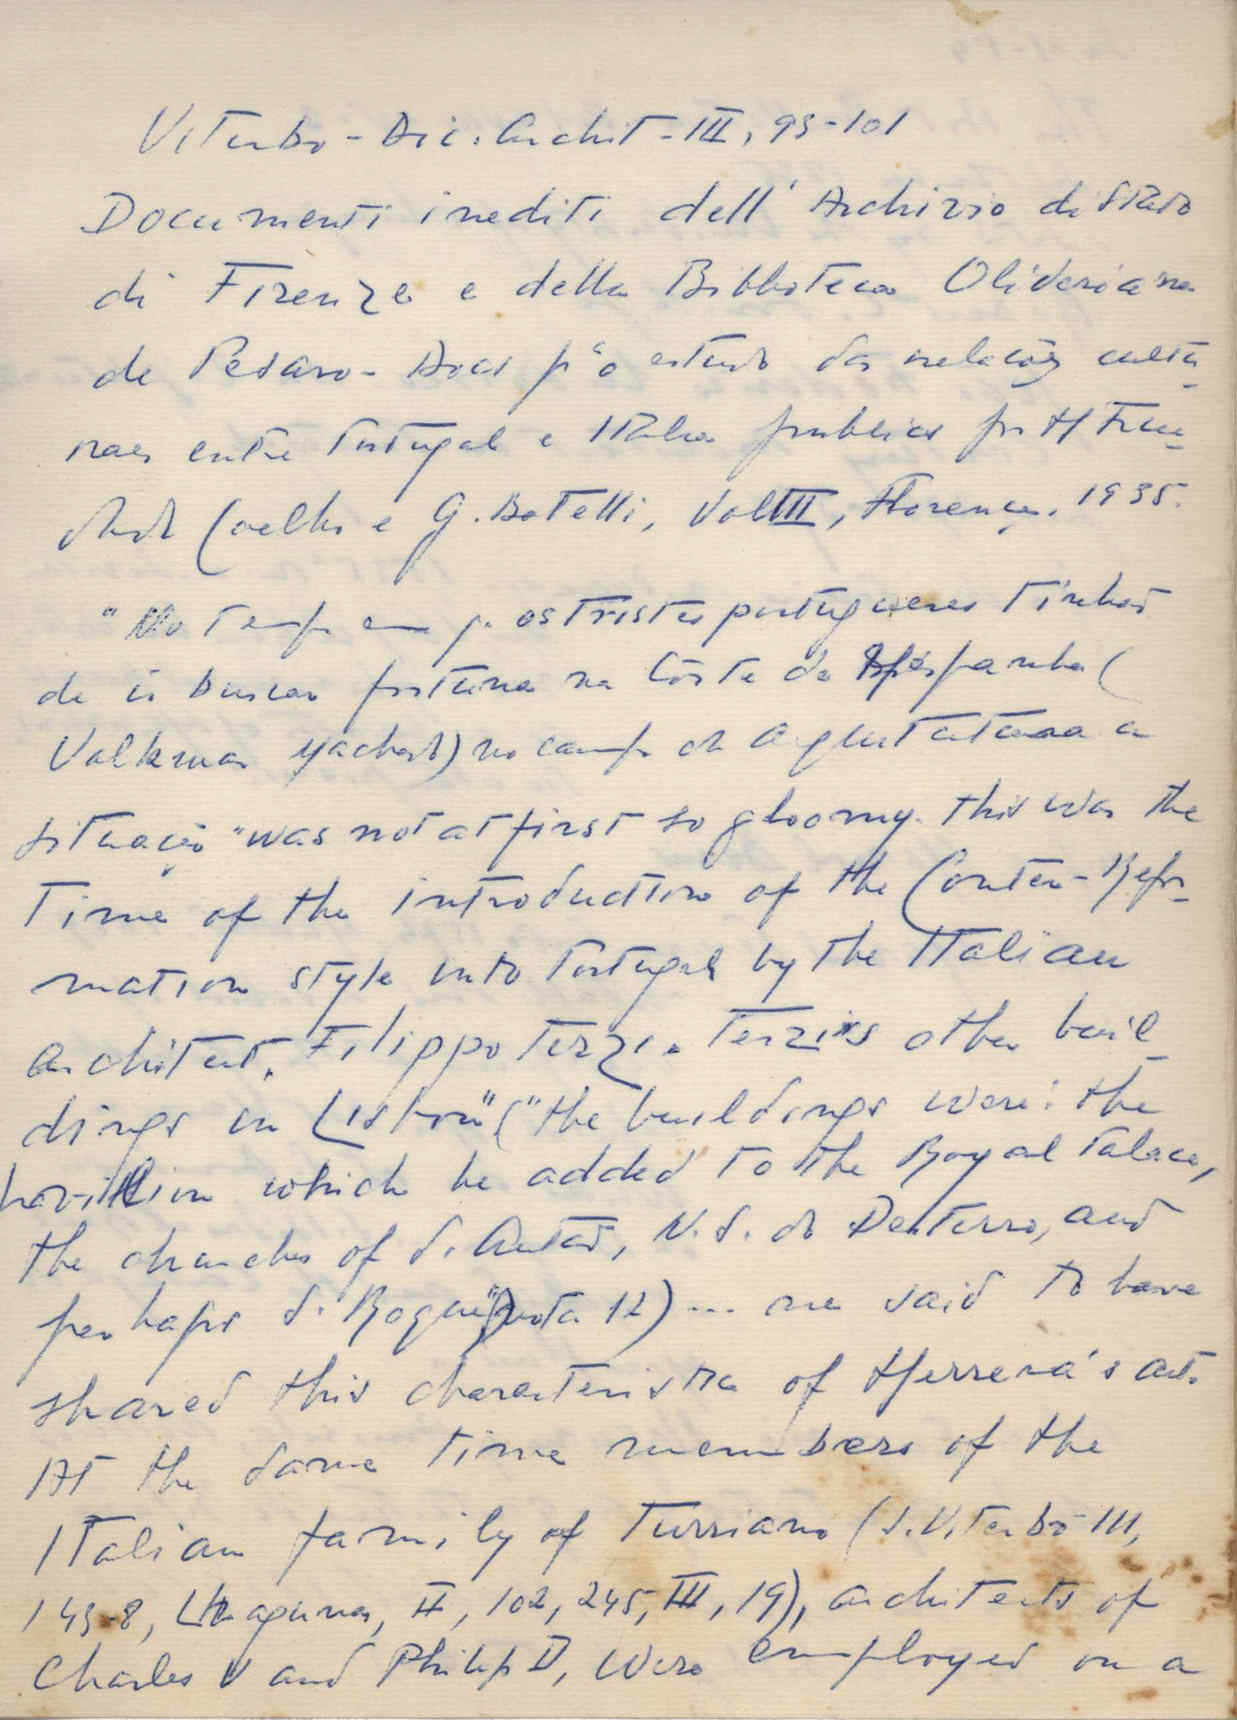 Viterbo - Dic. Archit - III, 93-101
Documenti inediti dell' Archivio di Stato
di Firenze e della Biblioteca Oliveriana
de Pesaro - Docs pª o estudo das relações cultu-
raes entre Portugal e Italia publics por H Trin-
dade Coelho e G. Batelli, Vol III, Florença, 1935.
"No tempo em q. os tristes portugueses tinham
de ir buscar fortuna na Côrte da Espanha (
Volkmar Machado) no campo da arquitetura a
situação "was not at first so gloomy. this was the
time of the introduction of the Conter-Refor-
mation style into Portugal by the Italian
architect, Filippo Terzi. Terzi's other buil-
dings in Lisbon" ("the buildings were: the
pavillion which he added to the Royal Palace,
the churches of S. Antão, N. S. do Desterro, and
perhaps S. Roque" (nota 12) ... are said to have
shared this characteristic of Herrera's art.
At the same time members of the
Italian family of Turriano (S. Viterbo III,
143-8, Llaguno, II, 102, 245, III, 19), architects of
Charles V and Philip II, were employed on a